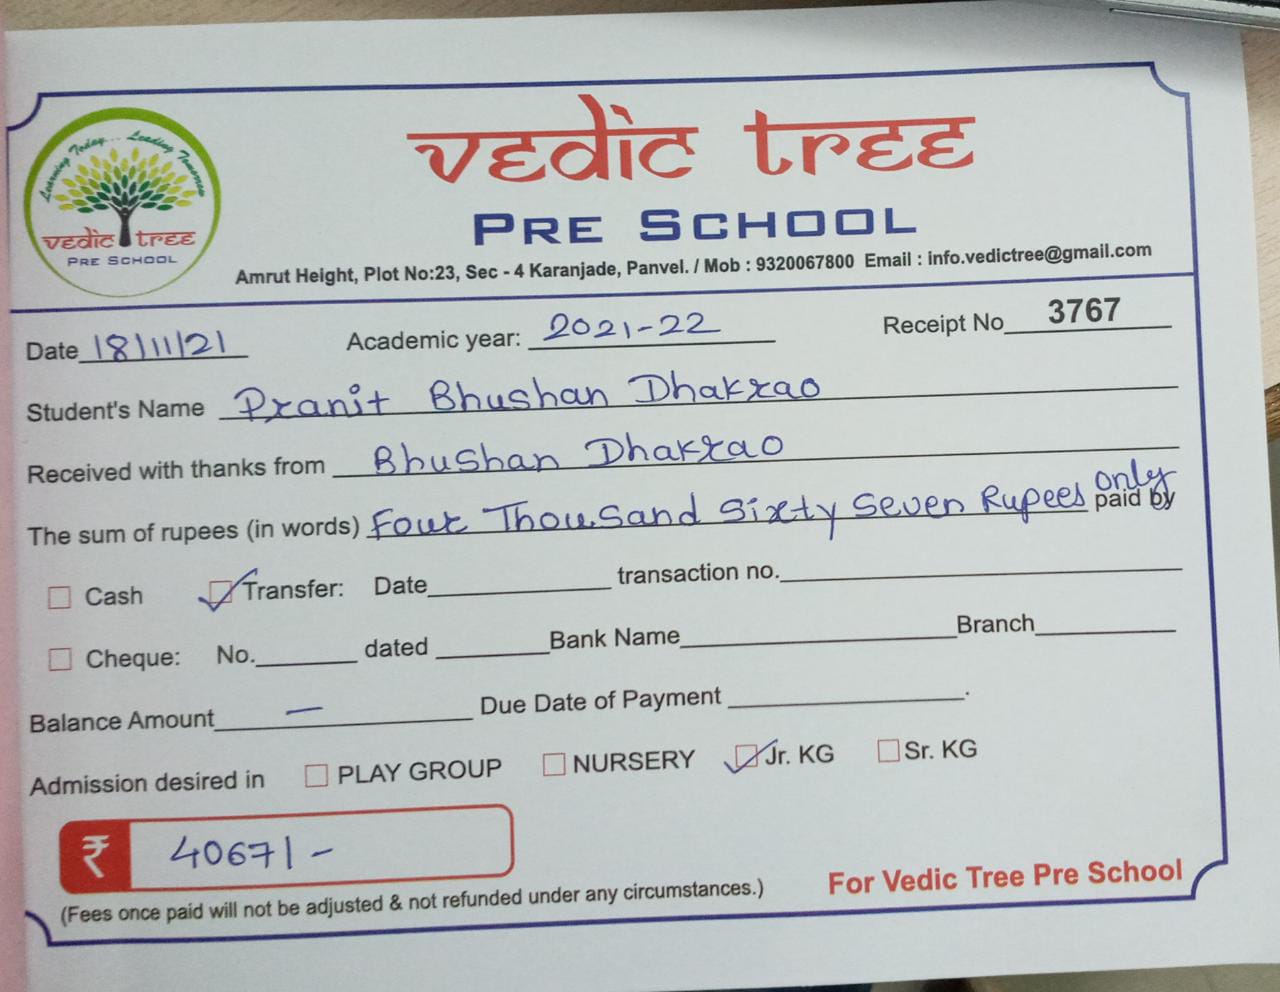 Learning Today... Leading Tomorrow
vedic tree
PRE SCHOOL
vedic tree
PRE SCHOOL
Amrut Height, Plot No:23, Sec - 4 Karanjade, Panvel. / Mob : 9320067800 Email : info.vedictree@gmail.com
Date 18/11/21 Academic year: 2021-22 Receipt No 3767
Student's Name Pranit Bhushan Dhakrao
Received with thanks from Bhushan Dhakrao
The sum of rupees (in words) Four Thousand Sixty Seven Rupees only paid by
Cash Transfer: Date transaction no.
Cheque: No. dated Bank Name Branch
Balance Amount — Due Date of Payment .
Admission desired in PLAY GROUP NURSERY Jr. KG Sr. KG
₹ 4067/-
(Fees once paid will not be adjusted & not refunded under any circumstances.) For Vedic Tree Pre School